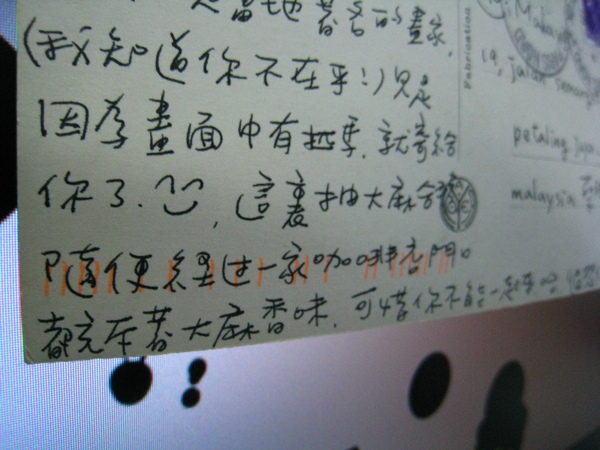 是當地著名的畫家,
(我知道你不在乎!)只是
因為畫面中有越南,就寄給
你了. , 這裏抽大麻合法
隨便經過一家咖啡店門口
都充斥著大麻香味, 可惜你不能一起來
Fabrication
Malay
19, jalan
petaling jaya
malaysia